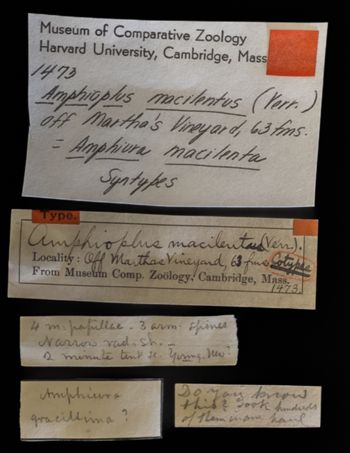 Museum of Comparative Zoology
Harvard University, Cambridge, Mass
1473
Amphioplus macilentus (Verr.)
off Martha's Vineyard, 63 fms.
= Amphiura macilenta
Syntypes
Type.
Amphioplus macilentus (Verr.).
Locality: Off Marthas Vineyard, 63 fms Cotypes
From Museum Comp. Zoölogy, Cambridge, Mass.
1473.
4 m. papillae. 3 arm. spines
Narrow rad. sh. –
2 minute tent. sc. Young.
Amphiura
gracillima?
Do you know
this? Took hundreds
of them in one haul